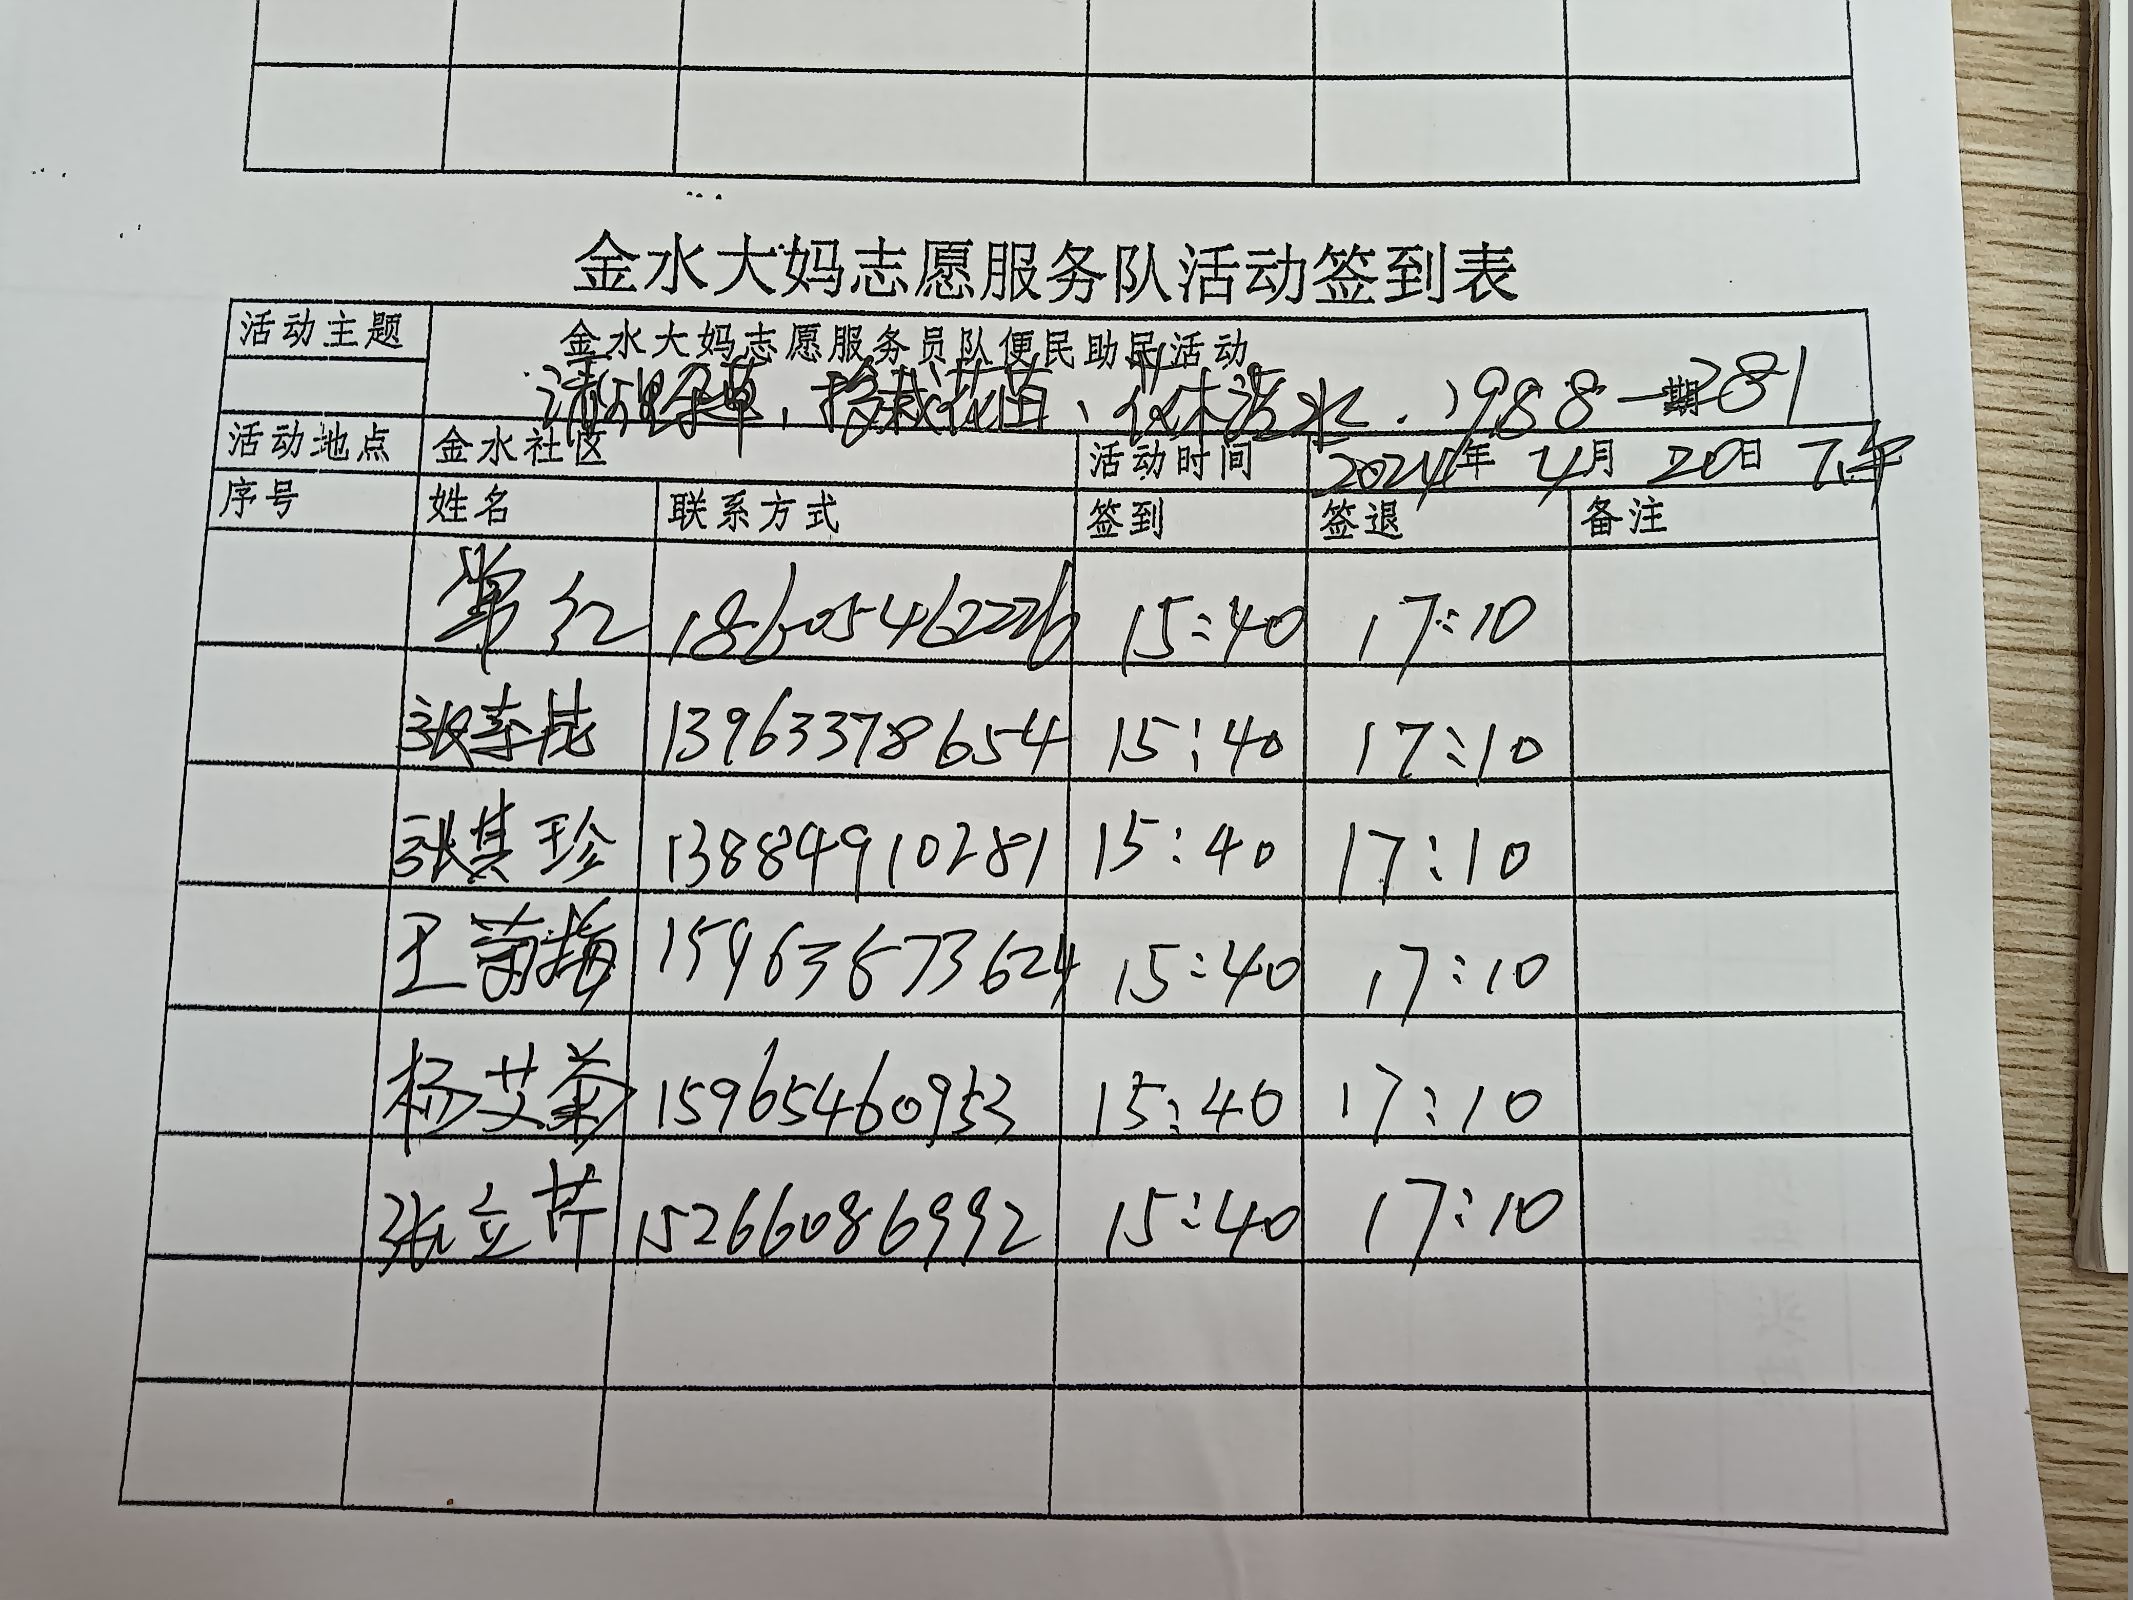 金水大妈志愿服务队活动签到表
活动主题 金水大妈志愿服务员队便民助民活动
清理杂草、移栽花苗、花木浇水. 1988-期281
活动地点 金水社区 活动时间 2024年 4月 20日 下午
序号 姓名 联系方式 签到 签退 备注
单红 18605462226 15:40 17:10
张 13963378654 15:40 17:10
张其珍 13884910281 15:40 17:10
王菊梅 15963673624 15:40 17:10
杨艾菊 15965460953 15:40 17:10
张立芹 15266086992 15:40 17:10